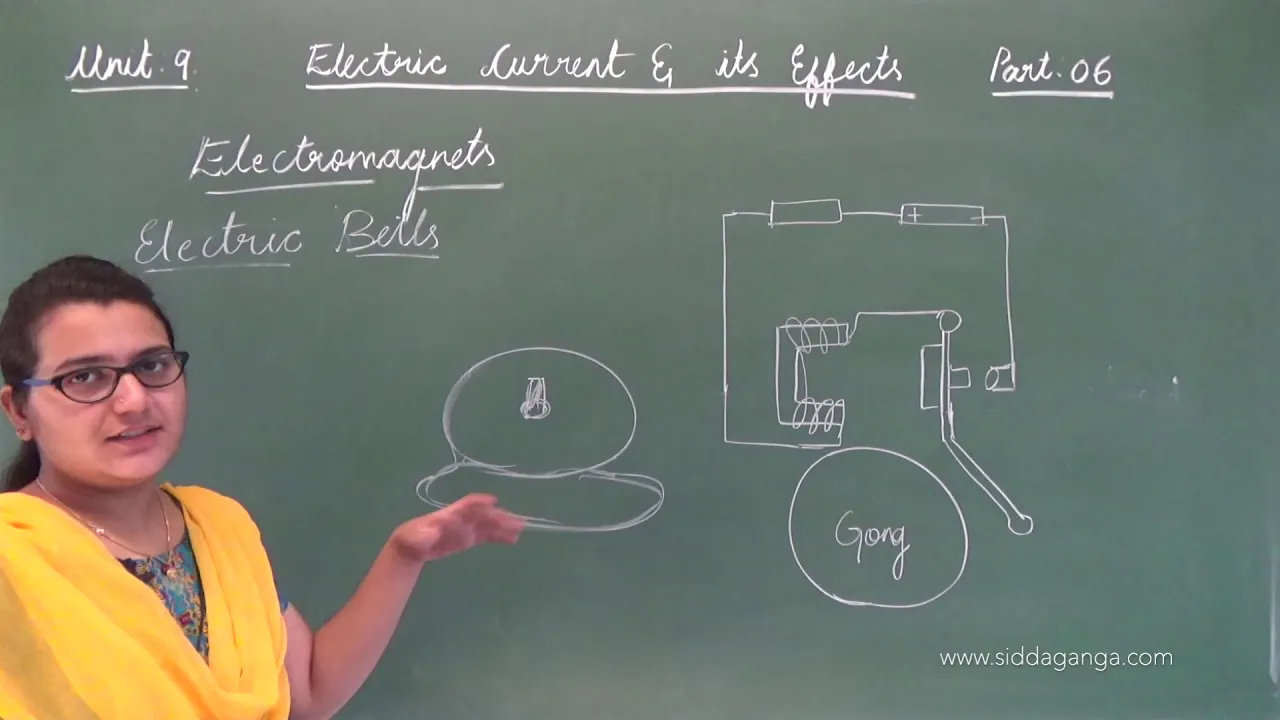 Unit: 9. Electric Current & its Effects Part: 06
Electromagnets
Electric Bells
+ -
Gong
www.siddaganga.com